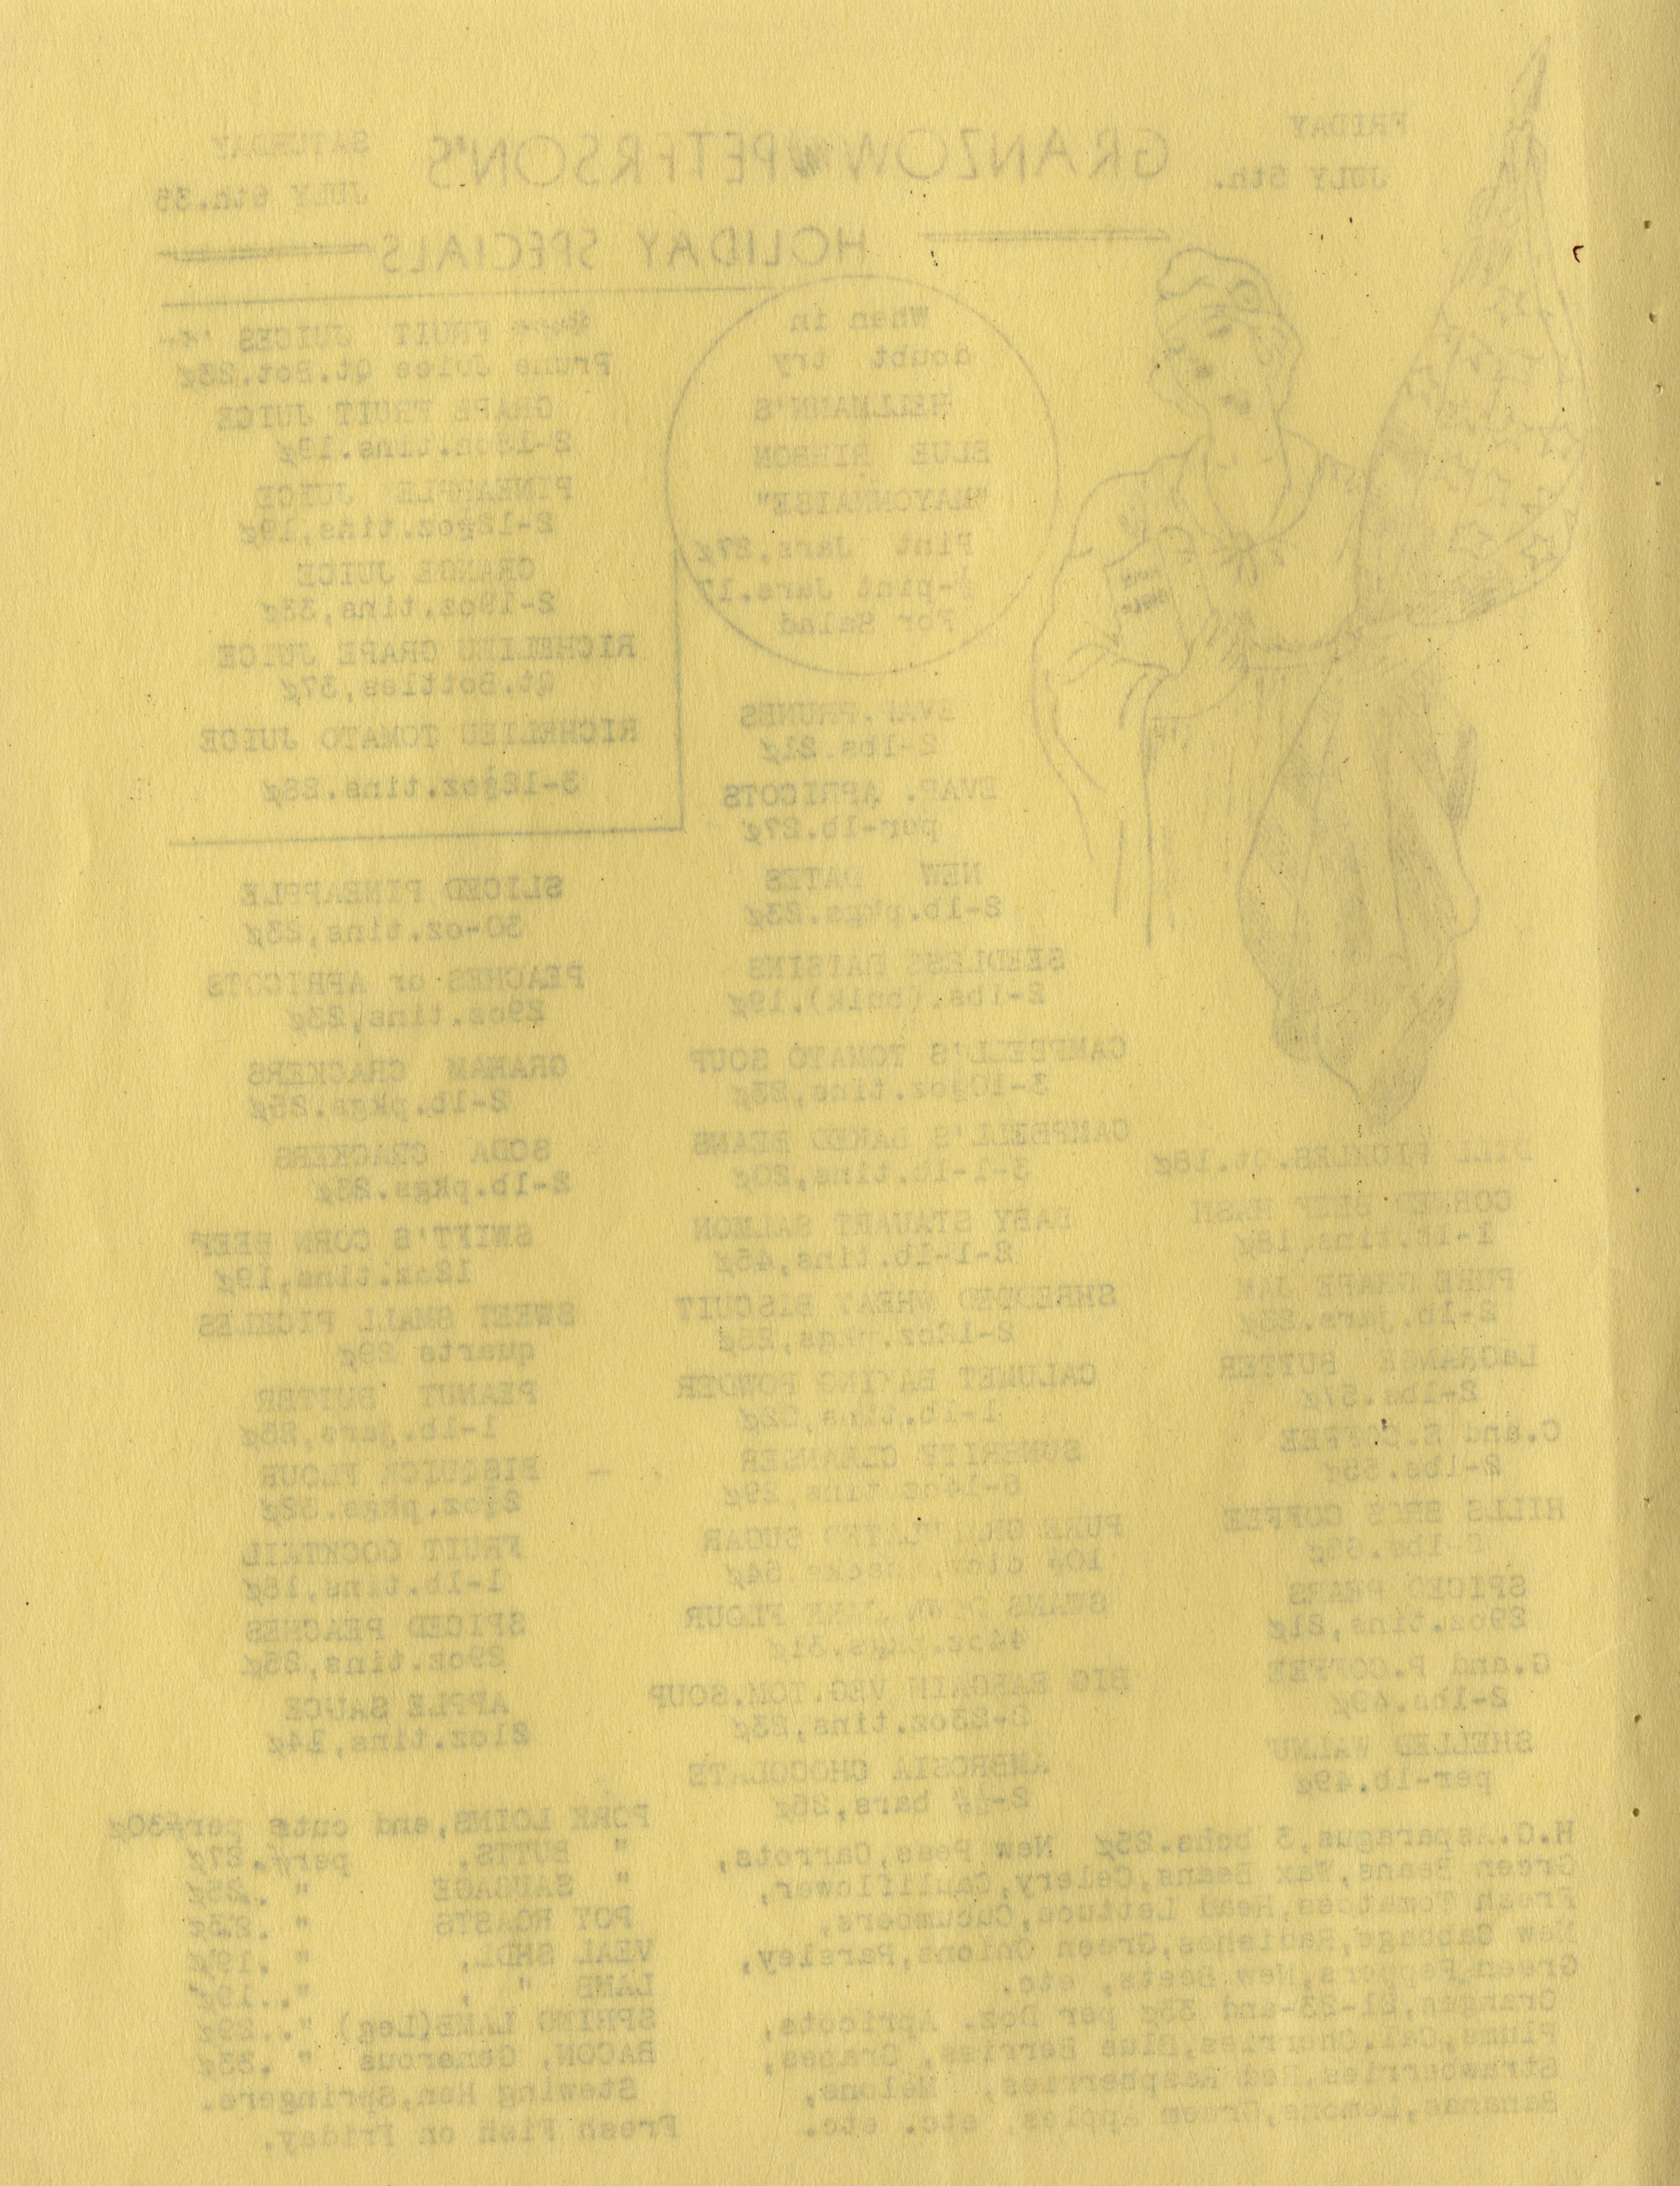 FRIDAY
JULY 5th.
GRANZOW & PETERSON'S
SATURDAY
JULY 6th.35
HOLIDAY SPECIALS
When in
doubt try
HELLMANN'S
BLUE RIBBON
"MAYONNAISE"
Pint Jars,27¢
½-pint Jars.17
For Salad
FRUIT JUICES
Prune Juice Qt.Bot.23¢
GRAPE FRUIT JUICE
tins.19¢
PINEAPPLE JUICE
2-12½oz.tins,19¢
ORANGE JUICE
2-19oz.tins,33¢
RICHELIEU GRAPE JUICE
Qt.Bottles,37¢
RICHELIEU TOMATO JUICE
3-12½oz.tins.28¢
EVAP.PRUNES
2-lbs.21¢
EVAP. APRICOTS
per-lb.27¢
NEW DATES
2-lb.pkgs.23¢
SEEDLESS RAISINS
2-lbs.(bulk),19¢
CAMPBELL'S TOMATO SOUP
3-10½oz.tins,23¢
CAMPBELL'S BAKED BEANS
3-1-lb.tins,20¢
BABY STAUART SALMON
2-1-lb.tins,45¢
SHREDDED WHEAT BISCUIT
2-12oz.pkgs,25¢
CALUMET BAKING POWDER
1-lb.tins,22¢
SUNBRITE CLEANSER
6-14oz tins,29¢
PURE GRANULATED SUGAR
10# sacks 54¢
SWANS DOWN CAKE FLOUR
44oz.pkgs.31¢
BIG BARGAIN VEG.TOM.SOUP
2-23oz.tins,23¢
AMBROSIA CHOCOLATE
2-½# bars,25¢
SLICED PINEAPPLE
30-oz.tins,23¢
PEACHES or APRICOTS
29oz.tins,23¢
GRAHAM CRACKERS
2-lb.pkgs.25¢
SODA CRACKERS
2-lb.pkgs.23¢
SWIFT'S CORN BEEF
12oz.tins,19¢
SWEET SMALL PICKLES
quarts 29¢
PEANUT BUTTER
1-lb.jars,25¢
BISQUICK FLOUR
pkgs.32¢
FRUIT COCKTAIL
1-lb.tins,18¢
SPICED PEACHES
29oz.tins,25¢
APPLE SAUCE
21oz.tins,14¢
DILL PICKLES.Qt.18¢
CORNED BEEF HASH
1-lb.tins,18¢
PURE GRAPE JAM
2-lb.jars.23¢
LaGRANGE BUTTER
2-lbs.57¢
C.and S.COFFEE
2-lbs.55¢
HILLS BROS COFFEE
2-lbs.65¢
SPICED PEARS
29oz.tins,21¢
G.and P.COFFEE
2-lbs.49¢
SHELLED WALNUT
per-lb.49¢
H.G.Asparagus,3 bchs.25¢ New Peas,Carrots,
Green Beans,Wax Beans,Celery,Cauliflower,
Fresh Tomatoes,Head Lettuce,Cucumbers,
New Cabbage,Radishes,Green Onions,Parsley,
Green Peppers,New Beets, etc.
Oranges,21-23-and 35¢ per Doz. Apricots,
Plums,Cal.Cherries,Blue Berries, Grapes,
Strawberries,Red Raspberries, Melons,
Bananas,Lemons,Green Apples, etc. etc.
PORK LOINS,end cuts per#30¢
" BUTTS. per#.27¢
" SAUSAGE " .25¢
POT ROASTS " .23¢
VEAL SHDL, " .19¢
LAMB " , "..19¢
SPRING LAMB(Leg) "..29¢
BACON, Generous " .33¢
Stewing Hen,Springers.
Fresh Fish on Friday.